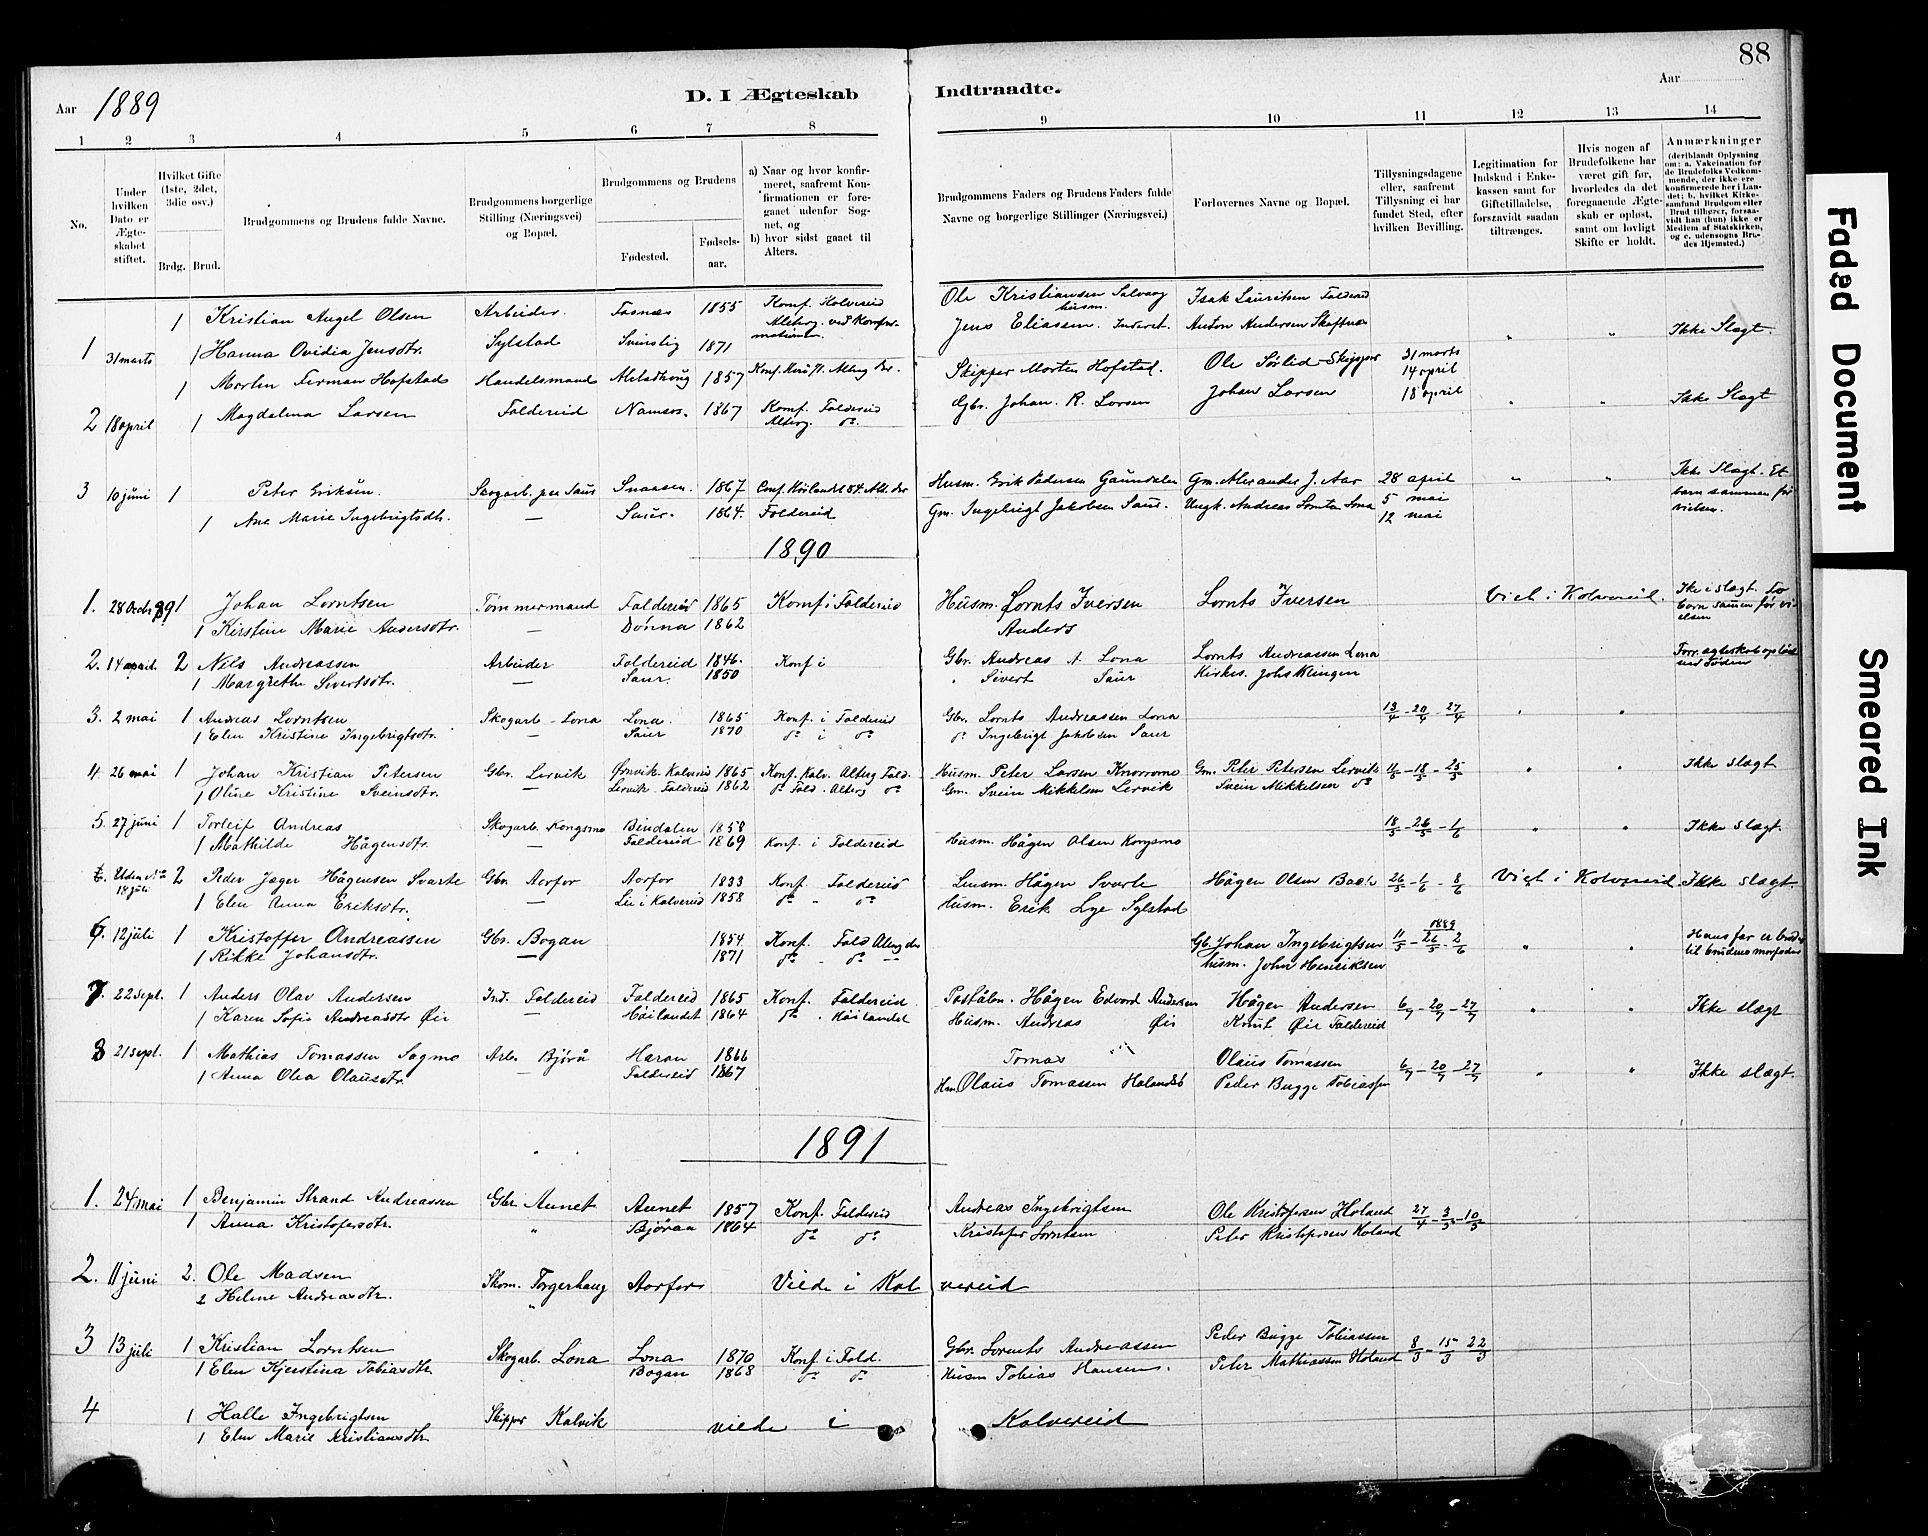 88
Aar 1889
D. I Ægteskab Indtraadte.
Aar
1 2 3 4 5 6 7 8 9 10 11 12 13 14
No.
Under hvilken Dato er Ægteskabet stiftet.
Hvilket Gifte (1ste, 2det, 3die osv.)
Brdg. Brud.
Brudgommens og Brudens fulde Navne.
Brudgommens borgerlige Stilling (Næringsvei) og Bopæl.
Brudgommens og Brudens
Fødested.
Fødselsaar.
a) Naar og hvor konfirmeret, saafremt Konfirmationen er foregaaet udenfor Sognet, og
b) hvor sidst gaaet til Alters.
Brudgommens Faders og Brudens Faders fulde Navne og borgerlige Stillinger (Næringsvei.)
Forlovernes Navne og Bopæl.
Tillysningsdagene eller, saafremt Tillysning ei har fundet Sted, efter hvilken Bevilling.
Legitimation for Indskud i Enkekassen samt for Giftetilladelse, forsaavidt saadan tiltrænges.
Hvis nogen af Brudefolkene har været gift før, hvorledes da det foregaaende Ægteskab er opløst, samt om lovligt Skifte er holdt.
Anmærkninger
(deriblandt Oplysning om: a. Vakcination for de Brudefolks Vedkommende, der ikke ere konfirmerede her i Landet; b. hvilket Kirkesamfund Brudgom eller Brud tilhører, forsaavidt han (hun) ikke er Medlem af Statskirken, og c. udensogns Brudes Hjemsted.)
1 Kristian Angel Olsen Arbeider. Fosnæs 1855 Konf. Kolvereid Ole Kristiansen Salvaag husm. Isak Lauritsen Foldereid
1 31 marts 1 Hanna Ovidia Jensdtr. Sylstad 1871 Jens Eliassen. Inderst. Anton Andersen Ikke Slagt
1 Morten Hofstad Handelsmand 1857 Skipper Morten Hofstad. Ole Sørlid Skipper 31 marts
14 april
2 18 april 1 Magdalena Larsen Foldereid Namsos. 1867 Konf. Foldereid Alterg. do. Gbr. Johan. R. Larsen Johan Larsen 18 april Ikke Slagt
3 10 juni 1 Peter Eriksen. Skogarb. paa Saur Snaasen. 1867 Conf. Høilandet 84. Alt. der Husm. Erik Pedersen Gaundalen Gm. Alexander J. Aar 28 april Ikke Slagt. Et
1 Ane Marie Ingebrigtsdtr. — Saur. 1864. Foldereid Gm. Ingebrigt Jakobsen Saur. Ungk. Andreas 5 mai barn sammen før
12 mai vielsen.
1890
1. 28 Octb 89 1 Johan Lorntsen Tømmermand Foldereid 1865 Konf i Foldereid Husm. Lornts Iversen Lornts Iversen Viet i Kolvereid. Ikke i slagt. To
1 Kirstine Marie Andersdtr. — Dønna 1862 Anders barn samen før vielsen
2. 14 april. 2 Nils Andreassen Arbeider Foldereid 1846. Konf i Gbr. Andreas A. Lona Lornts Andreassen Lona
1 Margrethe Sivertsdtr. — Saur. 1850 " Sivert Saur Kirkes. Johs Klingen
3. 2 mai 1 Andreas Lorntsen Skogarb - Lona Lona. 1865 Konf. i Foldereid Gbr. Lornts Andreassen Lona 13/4 - 20/4 - 27/4
1 Elen Kristine Ingebrigtsdtr. — Saur 1870 do i do do Ingebrigt Jakobsen Saur
4 26 mai 1 Johan Kristian Petersen Gbr. Lervik Ørnvik - Kolvereid 1865 Konf. Kolv. Alterg. Fold. Husm. Peter Larsen Gm. Peter Petersen Lervik 11/5 - 18/5 - 25/5 " " Ikke slagt
1 Oline Kristine Sveinsdtr. — Lervik - Foldereid 1862 do Fold. Alterg do Gm. Svein Mikkelsen Lervik Svein Mikkelsen do
5. 27 juni 1 Torleif Andreas Skogarb. Kongsmo Bindalen 1858 18/5 - 26/5 - 1/6 " " Ikke slagt.
1 Mathilde Hågensdtr. — Foldereid 1869 Konf. i Foldereid Husm. Hågen Olsen Kongsmo
14 juli 2 Peder Jæger Hågensen Svarte Gbr. Aorfor Aorfor 1833 Konf. Foldereid Lensm. Hågen Svarte Hågen Olsen Bach 26/5 - 1/6 - 8/6 Viet i Kolvereid Ikke slagt.
1 Elen Anna Eriksdtr. — Lie i Kolvereid 1858 do " do Husm. Erik Lye Sylstad
6. 12 juli 1 Kristoffer Andreassen Gbr. Bogan 1854 Konf. Fold Alterg do Gb. Johan Ingebrigtsen 1889 11/5 - 26/5 - 2/6 " " Hans far er broder
1 Rikke Johansdtr. — 1871 do " do husm. John Henriksen til brudens morfader
7. 22 sept. 1 Anders Olav Andersen Ind. Foldereid Foldereid 1865 Konf. Foldereid. Poståbn. Hågen Edvard Andersen Hågen Andersen 6/7 - 20/7 - 27/7 " " Ikke slagt
1 Karen Sofie Andreasdtr Øie — Høilandet 1864 do " Høilandet Husm. Andreas Øie Knut Øie Foldereid
8 21 sept. 1 Mathias Tomassen Sagmo Arb. Bjøraa Haran 1866 Tomas Olaus Tomassen 6/7 - 20/7 - 27/7 " " Ikke slagt.
1 Anna Olea Olausdtr. — Foldereid 1867 Hm. Olaus Tomassen Peder Bugge Tobiassen
1891
1. 24. mai 1 Benjamin Strand Andreassen Gbr. Aunet Aunet 1857 Konf. Foldereid Andreas Ingebrigtsen Ole Kristofersen Holand 27/4 - 3/5 - 10/5
1 Anna Kristofersdtr. " Bjøraa 1864 do do Kristofer Lorntsen Peter Kristofersen Holand
2. 11 juni 2. Ole Madsen Skom. Torgerhaug Aorfor Viede i Kolvereid
2 Helene Andreasdtr. "
3 13 juli 1 Kristian Lorntsen Skogarb. Lona Lona 1870 Konf. i Fold. Gbr. Lorents Andreassen Peder Bugge Tobiassen 8/3 - 15/3 - 22/3
1 Elen Kjerstina Tobiasdtr. Bogan 1868 do do Husm Tobias Hansen. Peter Mathiassen Holand
4 1 Halle Ingebrigtsen Skipper Kalvik viede i Kolvereid
1 Elen Marie Kristiansdtr.
Faded Document
Smeared Ink